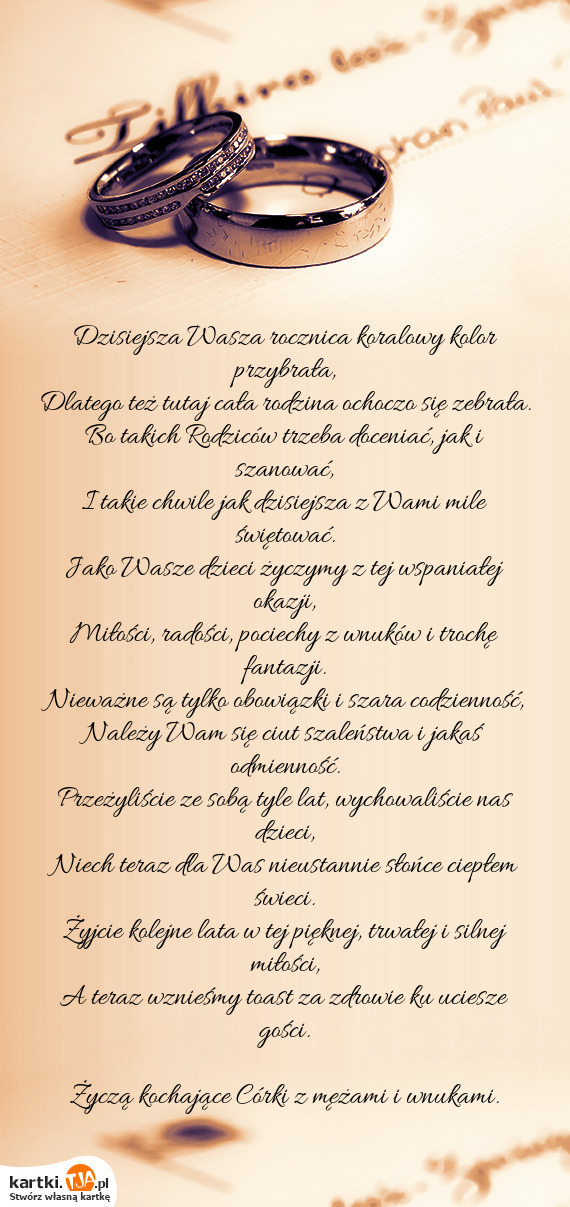 Dzisiejsza Wasza rocznica koralowy kolor
przybrała,
Dlatego też tutaj cała rodzina ochoczo się zebrała.
Bo takich Rodziców trzeba doceniać, jak i
szanować,
I takie chwile jak dzisiejsza z Wami mile
świętować.
Jako Wasze dzieci życzymy z tej wspaniałej
okazji,
Miłości, radości, pociechy z wnuków i trochę
fantazji.
Nieważne są tylko obowiązki i szara codzienność,
Należy Wam się ciut szaleństwa i jakaś
odmienność.
Przeżyliście ze sobą tyle lat, wychowaliście nas
dzieci,
Niech teraz dla Was nieustannie słońce ciepłem
świeci.
Żyjcie kolejne lata w tej pięknej, trwałej i silnej
miłości,
A teraz wznieśmy toast za zdrowie ku uciesze
gości.
Życzą kochające Córki z mężami i wnukami.
kartki.TJA.pl
Stwórz własną kartkę